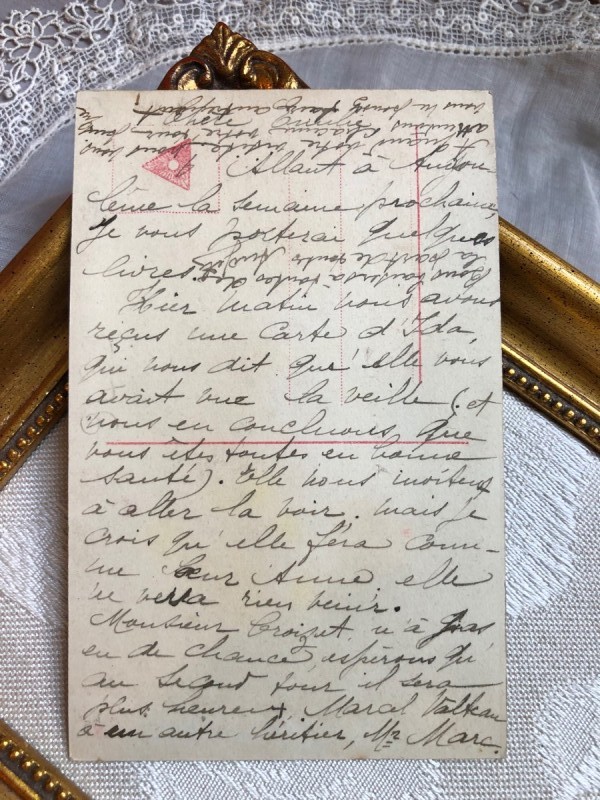 Chère Amélie
Allant à Angou
lême la semaine prochaine,
Je vous porterai quelques
livres.
Hier matin nous avons
reçus une carte d'Ida,
qui nous dit qu'elle vous
avait vue la veille (et
nous en concluons que
vous êtes toutes en bonne
santé). Elle nous invitent
à aller la voir. mais je
crois qu'elle fera com-
me Sœur Anne elle
ne verra rien venir.
Monsieur Croizet n'à pas
eu de chance, espérons qu'
au second tour il sera
plus heureux, Marcel Valteau
à un autre héritier, Mr Marc.